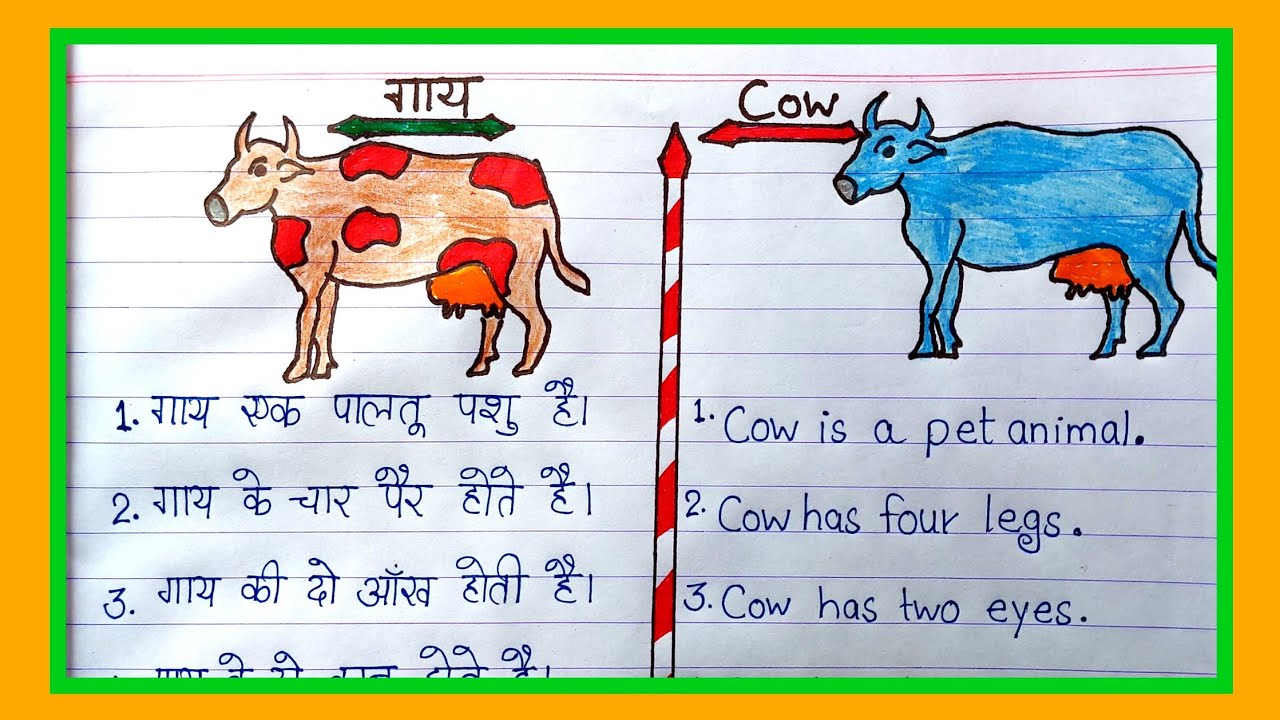 गाय
1. गाय एक पालतू पशु है।
2. गाय के चार पैर होते है।
3. गाय की दो आँख होती है।
होते है।
Cow
1. Cow is a pet animal.
2. Cow has four legs.
3. Cow has two eyes.